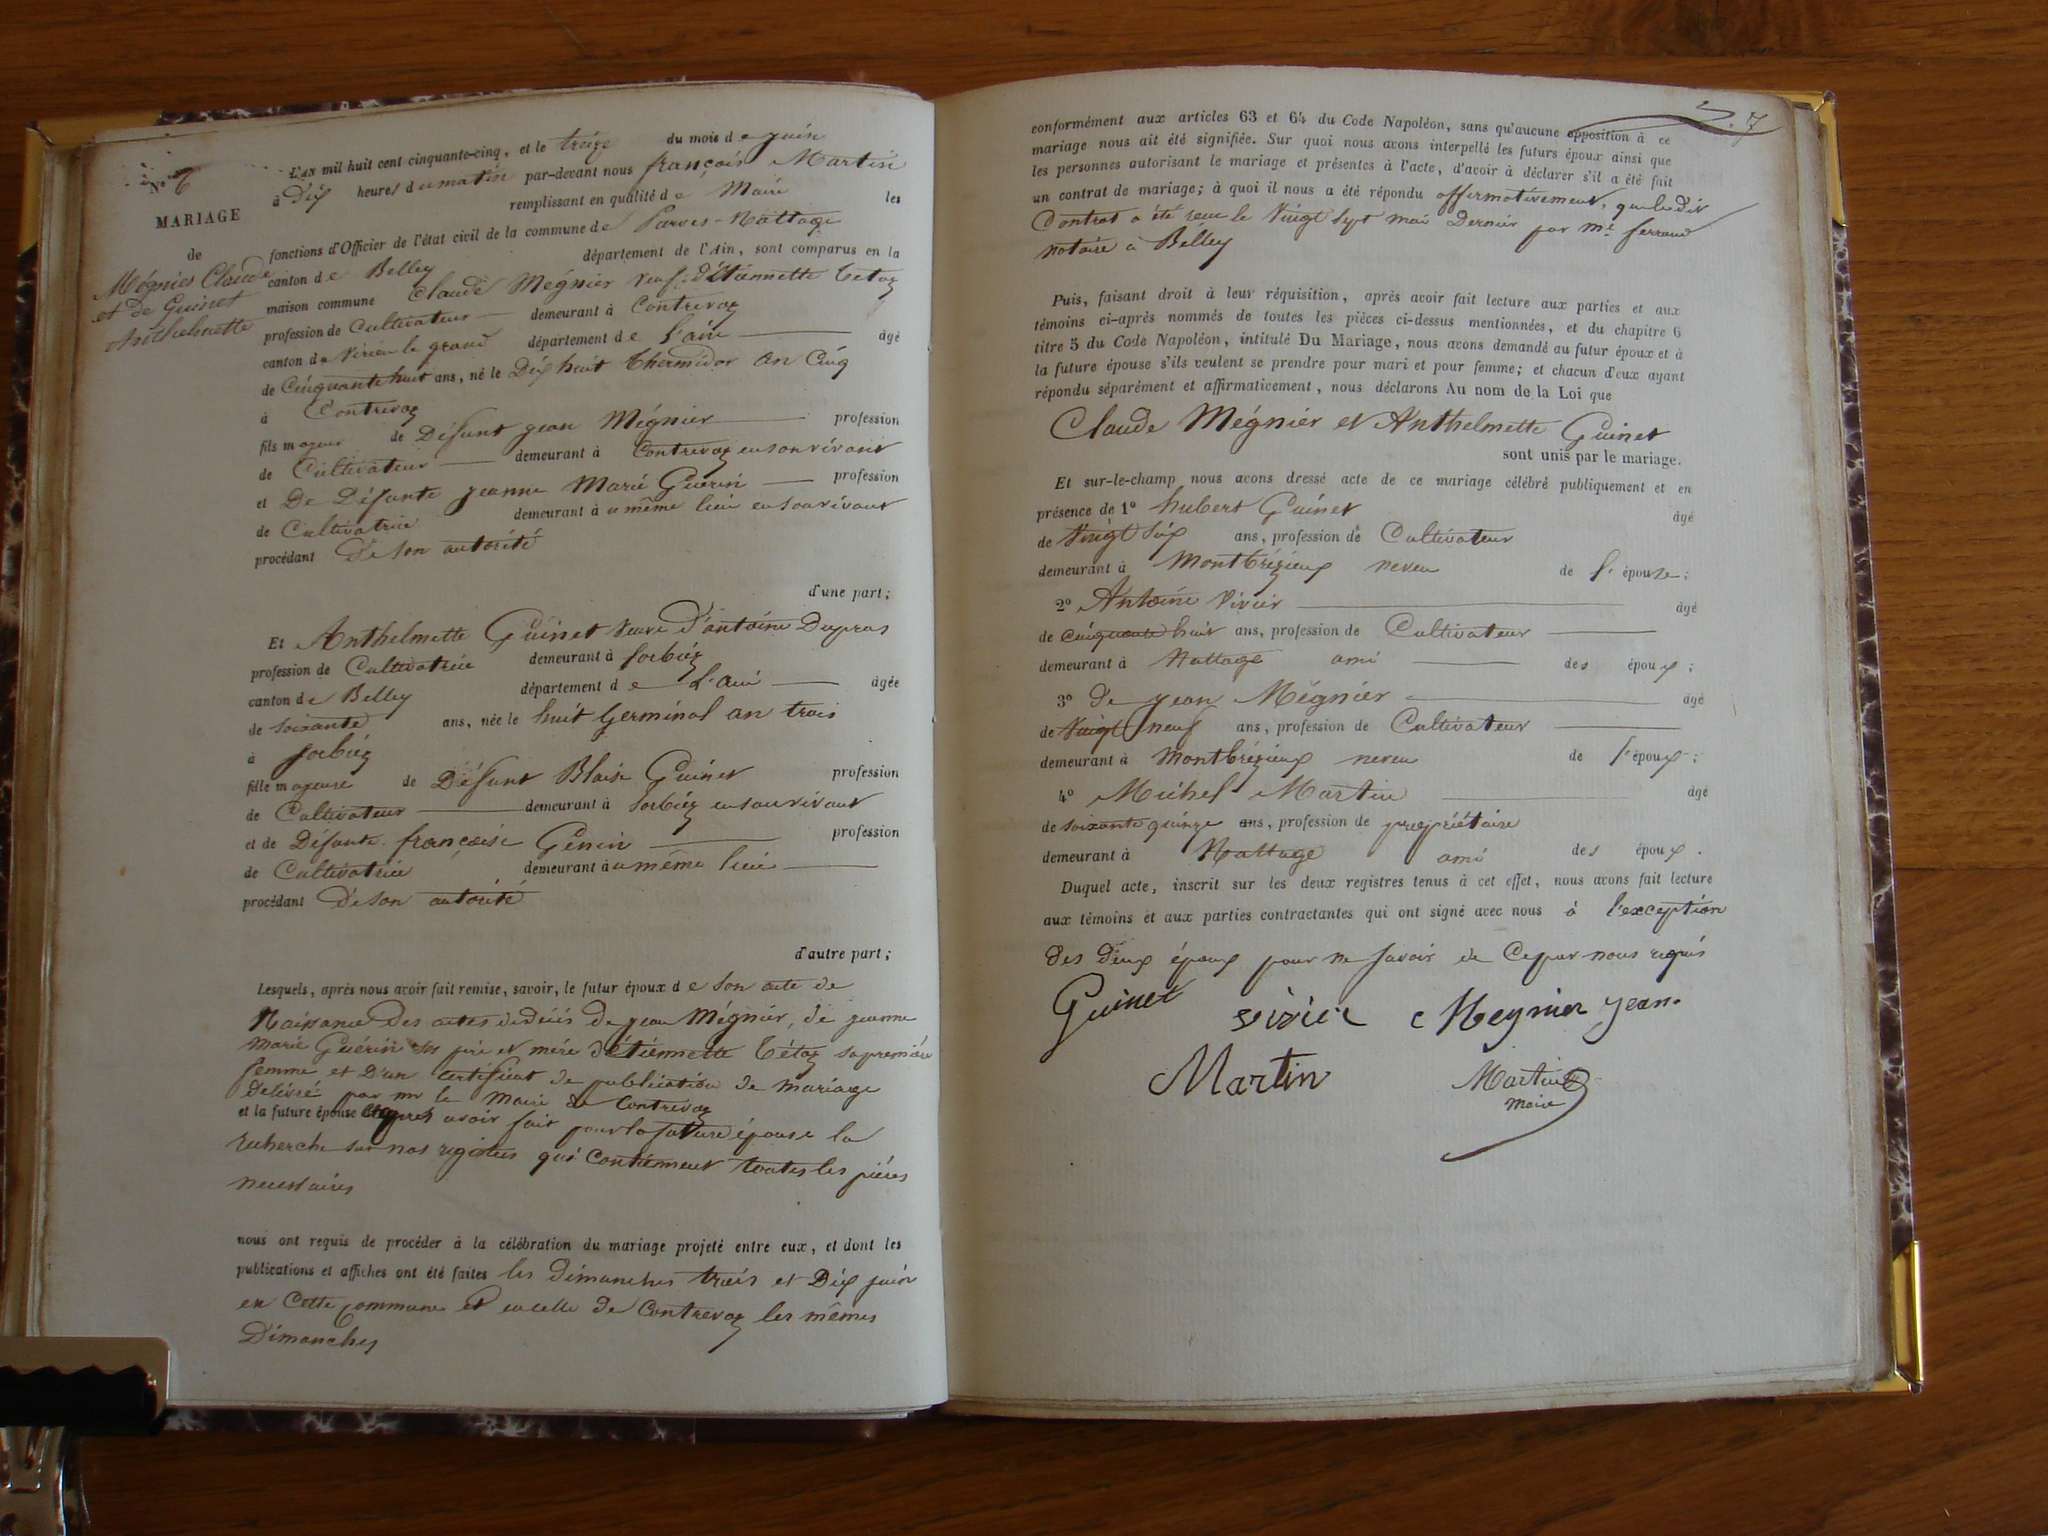 N° 6
MARIAGE
de
Mégnier Claude
et de Guinet
Anthelmette
L'an mil huit cent cinquante-cinq, et le treize du mois de juin
à Dix heures du matin par-devant nous françois Martin
remplissant en qualité de Maire les
fonctions d'Officier de l'état civil de la commune de Parves-Nattage
canton de Belley département de l'Ain, sont comparus en la
maison commune Claude Mégnier veuf d'Etiennette Tétaz
profession de Cultivateur demeurant à Contrevoz
canton de Virieu le grand département de l'ain âgé
de Cinquante huit ans, né le Dix huit thermidor an Cinq
à Contrevoz
fils majeur de Défunt jean Mégnier profession
de Cultivateur demeurant à Contrevoz en son vivant
et De Défunte jeanne Marie Guérin profession
de Cultivatrice demeurant au même lieu en son vivant
procédant De son autorité
d'une part;
Et Anthelmette Guinet veuve d'antoine Dupras
profession de Cultivatrice demeurant à Sorbiéz
canton de Belley département de L'ain âgée
de soixante ans, née le huit Germinal an trois
à Sorbiéz
fille majeure de Défunt Blaise Guinet profession
de Cultivateur demeurant à Sorbiéz en son vivant
et de Défunte françoise Génin profession
de Cultivatrice demeurant au même lieu
procédant De son autorité
d'autre part;
Lesquels, après nous avoir fait remise, savoir, le futur époux de son acte de
Naissance Des actes de décès De jean Mégnier, de jeanne
Marie Guérin ses père et mère d'Etiennette Tétaz sa première
femme et D'un certificat de publication de mariage
Délivré par mr le Maire de Contrevoz
et la future épouse après avoir fait pour la future épouse la
recherche sur nos registres qui Contiennent toutes les pièces
necessaires
nous ont requis de procéder à la célébration du mariage projeté entre eux, et dont les
publications et affiches ont été faites les dimanches trois et Dix juin
en Cette Commune et en celle de Contrevoz les mêmes
Dimanches
7
conformément aux articles 63 et 64 du Code Napoléon, sans qu'aucune opposition à ce
mariage nous ait été signifiée. Sur quoi nous avons interpellé les futurs époux ainsi que
les personnes autorisant le mariage et présentes à l'acte, d'avoir à déclarer s'il a été fait
un contrat de mariage; à quoi il nous a été répondu affirmativement, que le dit
Contrat a été reçu le Vingt sept mai Dernier par me ferrand
notaire à Belley
Puis, faisant droit à leur réquisition, après avoir fait lecture aux parties et aux
témoins ci-après nommés de toutes les pièces ci-dessus mentionnées, et du chapitre 6
titre 5 du Code Napoléon, intitulé Du Mariage, nous avons demandé au futur époux et à
la future épouse s'ils veulent se prendre pour mari et pour femme; et chacun d'eux ayant
répondu séparément et affirmativement, nous déclarons Au nom de la Loi que
Claude Mégnier et Anthelmette Guinet
sont unis par le mariage.
Et sur-le-champ nous avons dressé acte de ce mariage célébré publiquement et en
présence de 1° hubert Guinet âgé
de Vingt six ans, profession de Cultivateur
demeurant à Montbrézieux neveu de l'épouse;
2° Antoine Vivier âgé
de cinquante huit ans, profession de Cultivateur
demeurant à Nattage ami des époux;
3° de jean Mégnier âgé
de Vingt neuf ans, profession de Cultivateur
demeurant à Montbrézieux neveu de l'époux;
4° Michel Martin âgé
de soixante quinze ans, profession de propriétaire
demeurant à Nattage ami des époux.
Duquel acte, inscrit sur les deux registres tenus à cet effet, nous avons fait lecture
aux témoins et aux parties contractantes qui ont signé avec nous à l'exception
des deux époux pour ne savoir de Ce par nous requis
Guinet vivier Meynier jean
Martin Martin
maire